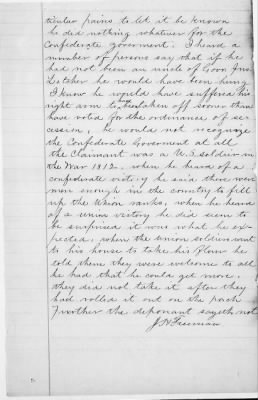 ticular pains to let it be known
he did nothing whatever for the
Confederate goverment. I heard a
number of persons say that if he
had not been an uncle of Gov Jno
Letcher he would have been hung
I know he would have suffered his
right arm to have taken off sooner than
have voted for the ordinance of se-
cession, he would not recognize
the Confederate Goverment at all
the Claimant was a U.S. Soldier in
the War 1812. when he heard of a
confederate victory he said there were
men enough in the country to fill
up the Union ranks, when he heard
of a union victory he did seem to
be surprised it was what he ex-
pected, when the union soldiers went
to his house to take his flour he
told them they were welcome to all
he had that he could get more,
they did not take it after they
had rolled it out on the porch
Further the deponant sayeth not